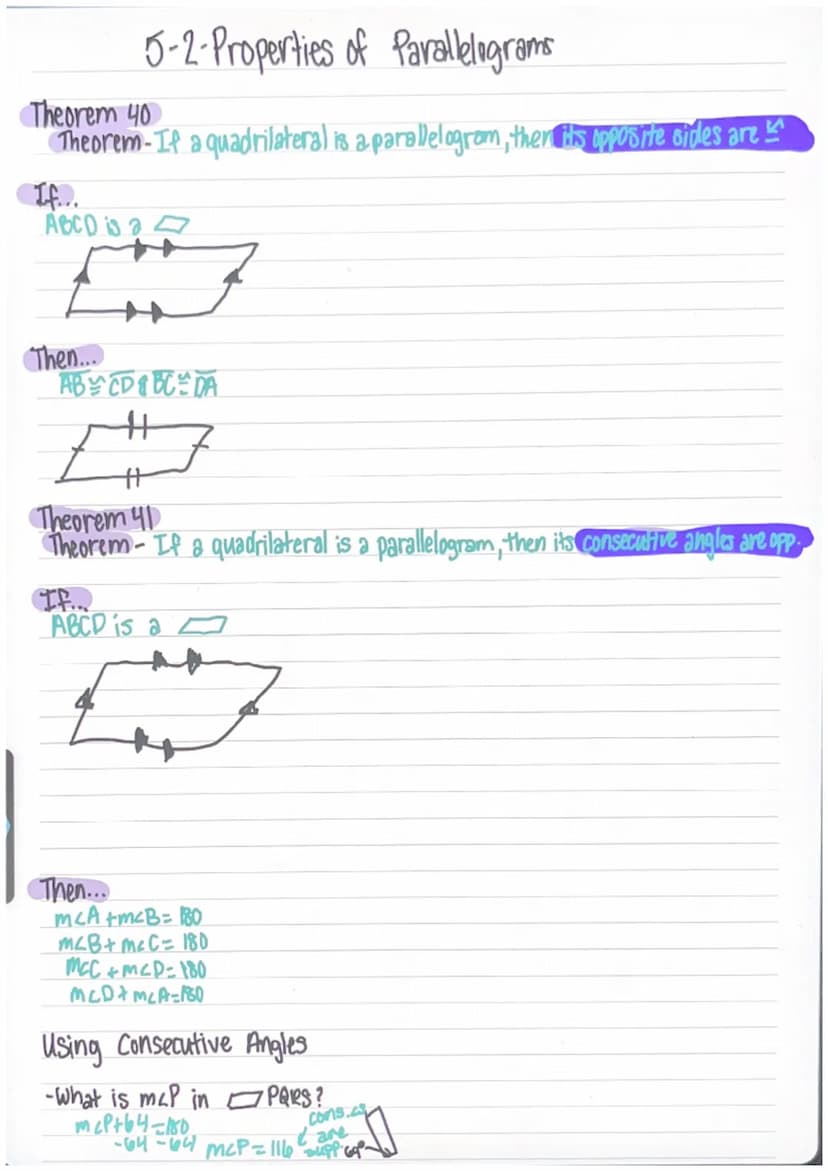 5-2-Properties of Parallelograms
Theorem 40
Theorem- If a quadrilateral is a parallelogram, then its opposite sides are ≅
If...
ABCD is a ▱
Then...
AB ≅ CD & BC ≅ DA
Theorem 41
Theorem- If a quadrilateral is a parallelogram, then its consecutive angles are opp.
If...
ABCD is a ▱
Then...
m∠A + m∠B = 180
m∠B + m∠C = 180
m∠C + m∠D = 180
m∠D + m∠A = 180
Using Consecutive Angles
-What is m∠P in ▱ PQRS?
m∠P + 64 = 180
-64 -64
m∠P = 116
cons. ∠s
are
supp.